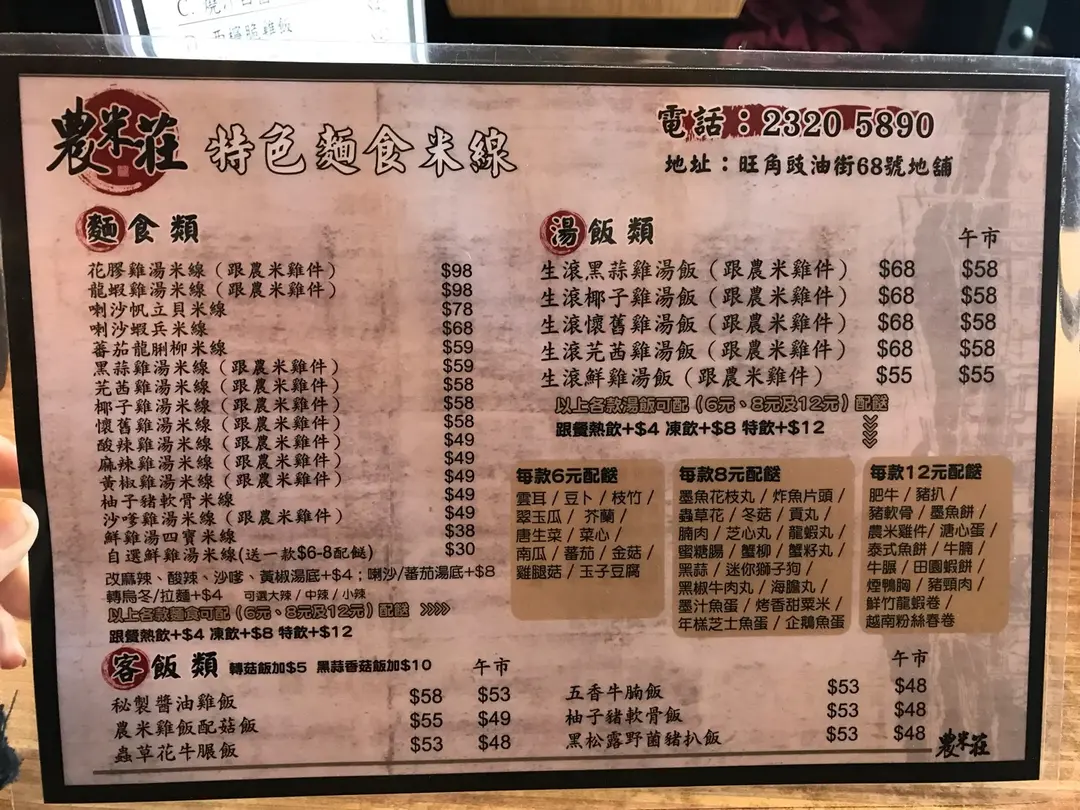 C. 燒汁
農米莊 特色麵食米線
電話：2320 5890
地址：旺角豉油街68號地舖
麵食類
花膠雞湯米線（跟農米雞件） $98
龍蝦雞湯米線（跟農米雞件） $98
喇沙帆立貝米線 $78
喇沙蝦兵米線 $68
蕃茄龍脷柳米線 $59
黑蒜雞湯米線（跟農米雞件） $59
芫茜雞湯米線（跟農米雞件） $58
椰子雞湯米線（跟農米雞件） $58
懷舊雞湯米線（跟農米雞件） $58
酸辣雞湯米線（跟農米雞件） $49
麻辣雞湯米線（跟農米雞件） $49
黃椒雞湯米線（跟農米雞件） $49
柚子豬軟骨米線 $49
沙嗲雞湯米線（跟農米雞件） $49
鮮雞湯四寶米線 $38
自選鮮雞湯米線(送一款$6-8配餸) $30
改麻辣、酸辣、沙嗲、黃椒湯底+$4；喇沙/蕃茄湯底+$8
轉烏冬/拉麵+$4 可選大辣/中辣/小辣
以上各款麵食可配（6元、8元及12元）配餸 >>>>
跟餐熱飲+$4 凍飲+$8 特飲+$12
湯飯類 午市
生滾黑蒜雞湯飯（跟農米雞件） $68 $58
生滾椰子雞湯飯（跟農米雞件） $68 $58
生滾懷舊雞湯飯（跟農米雞件） $68 $58
生滾芫茜雞湯飯（跟農米雞件） $68 $58
生滾鮮雞湯飯（跟農米雞件） $55 $55
以上各款湯飯可配（6元、8元及12元）配餸
跟餐熱飲+$4 凍飲+$8 特飲+$12
每款6元配餸
雲耳/豆卜/枝竹/
翠玉瓜/ 芥蘭/
唐生菜/菜心/
南瓜/蕃茄/金菇/
雞腿菇/玉子豆腐
每款8元配餸
墨魚花枝丸/炸魚片頭/
蟲草花/冬菇/貢丸/
腩肉/芝心丸/龍蝦丸/
蜜糖腸/蟹柳/蟹籽丸/
黑蒜/迷你獅子狗/
黑椒牛肉丸/海膽丸/
墨汁魚蛋/烤香甜粟米/
年糕芝士魚蛋/企鵝魚蛋
每款12元配餸
肥牛/豬扒/
豬軟骨/墨魚餅/
農米雞件/溏心蛋/
泰式魚餅/牛腩/
牛脤/田園蝦餅/
煙鴨胸/豬頸肉/
鮮竹龍蝦卷/
越南粉絲春卷
客飯類 轉菇飯加$5 黑蒜香菇飯加$10 午市
秘製醬油雞飯 $58 $53
農米雞飯配菇飯 $55 $49
蟲草花牛脤飯 $53 $48
午市
五香牛腩飯 $53 $48
柚子豬軟骨飯 $53 $48
黑松露野菌豬扒飯 $53 $48
農米莊